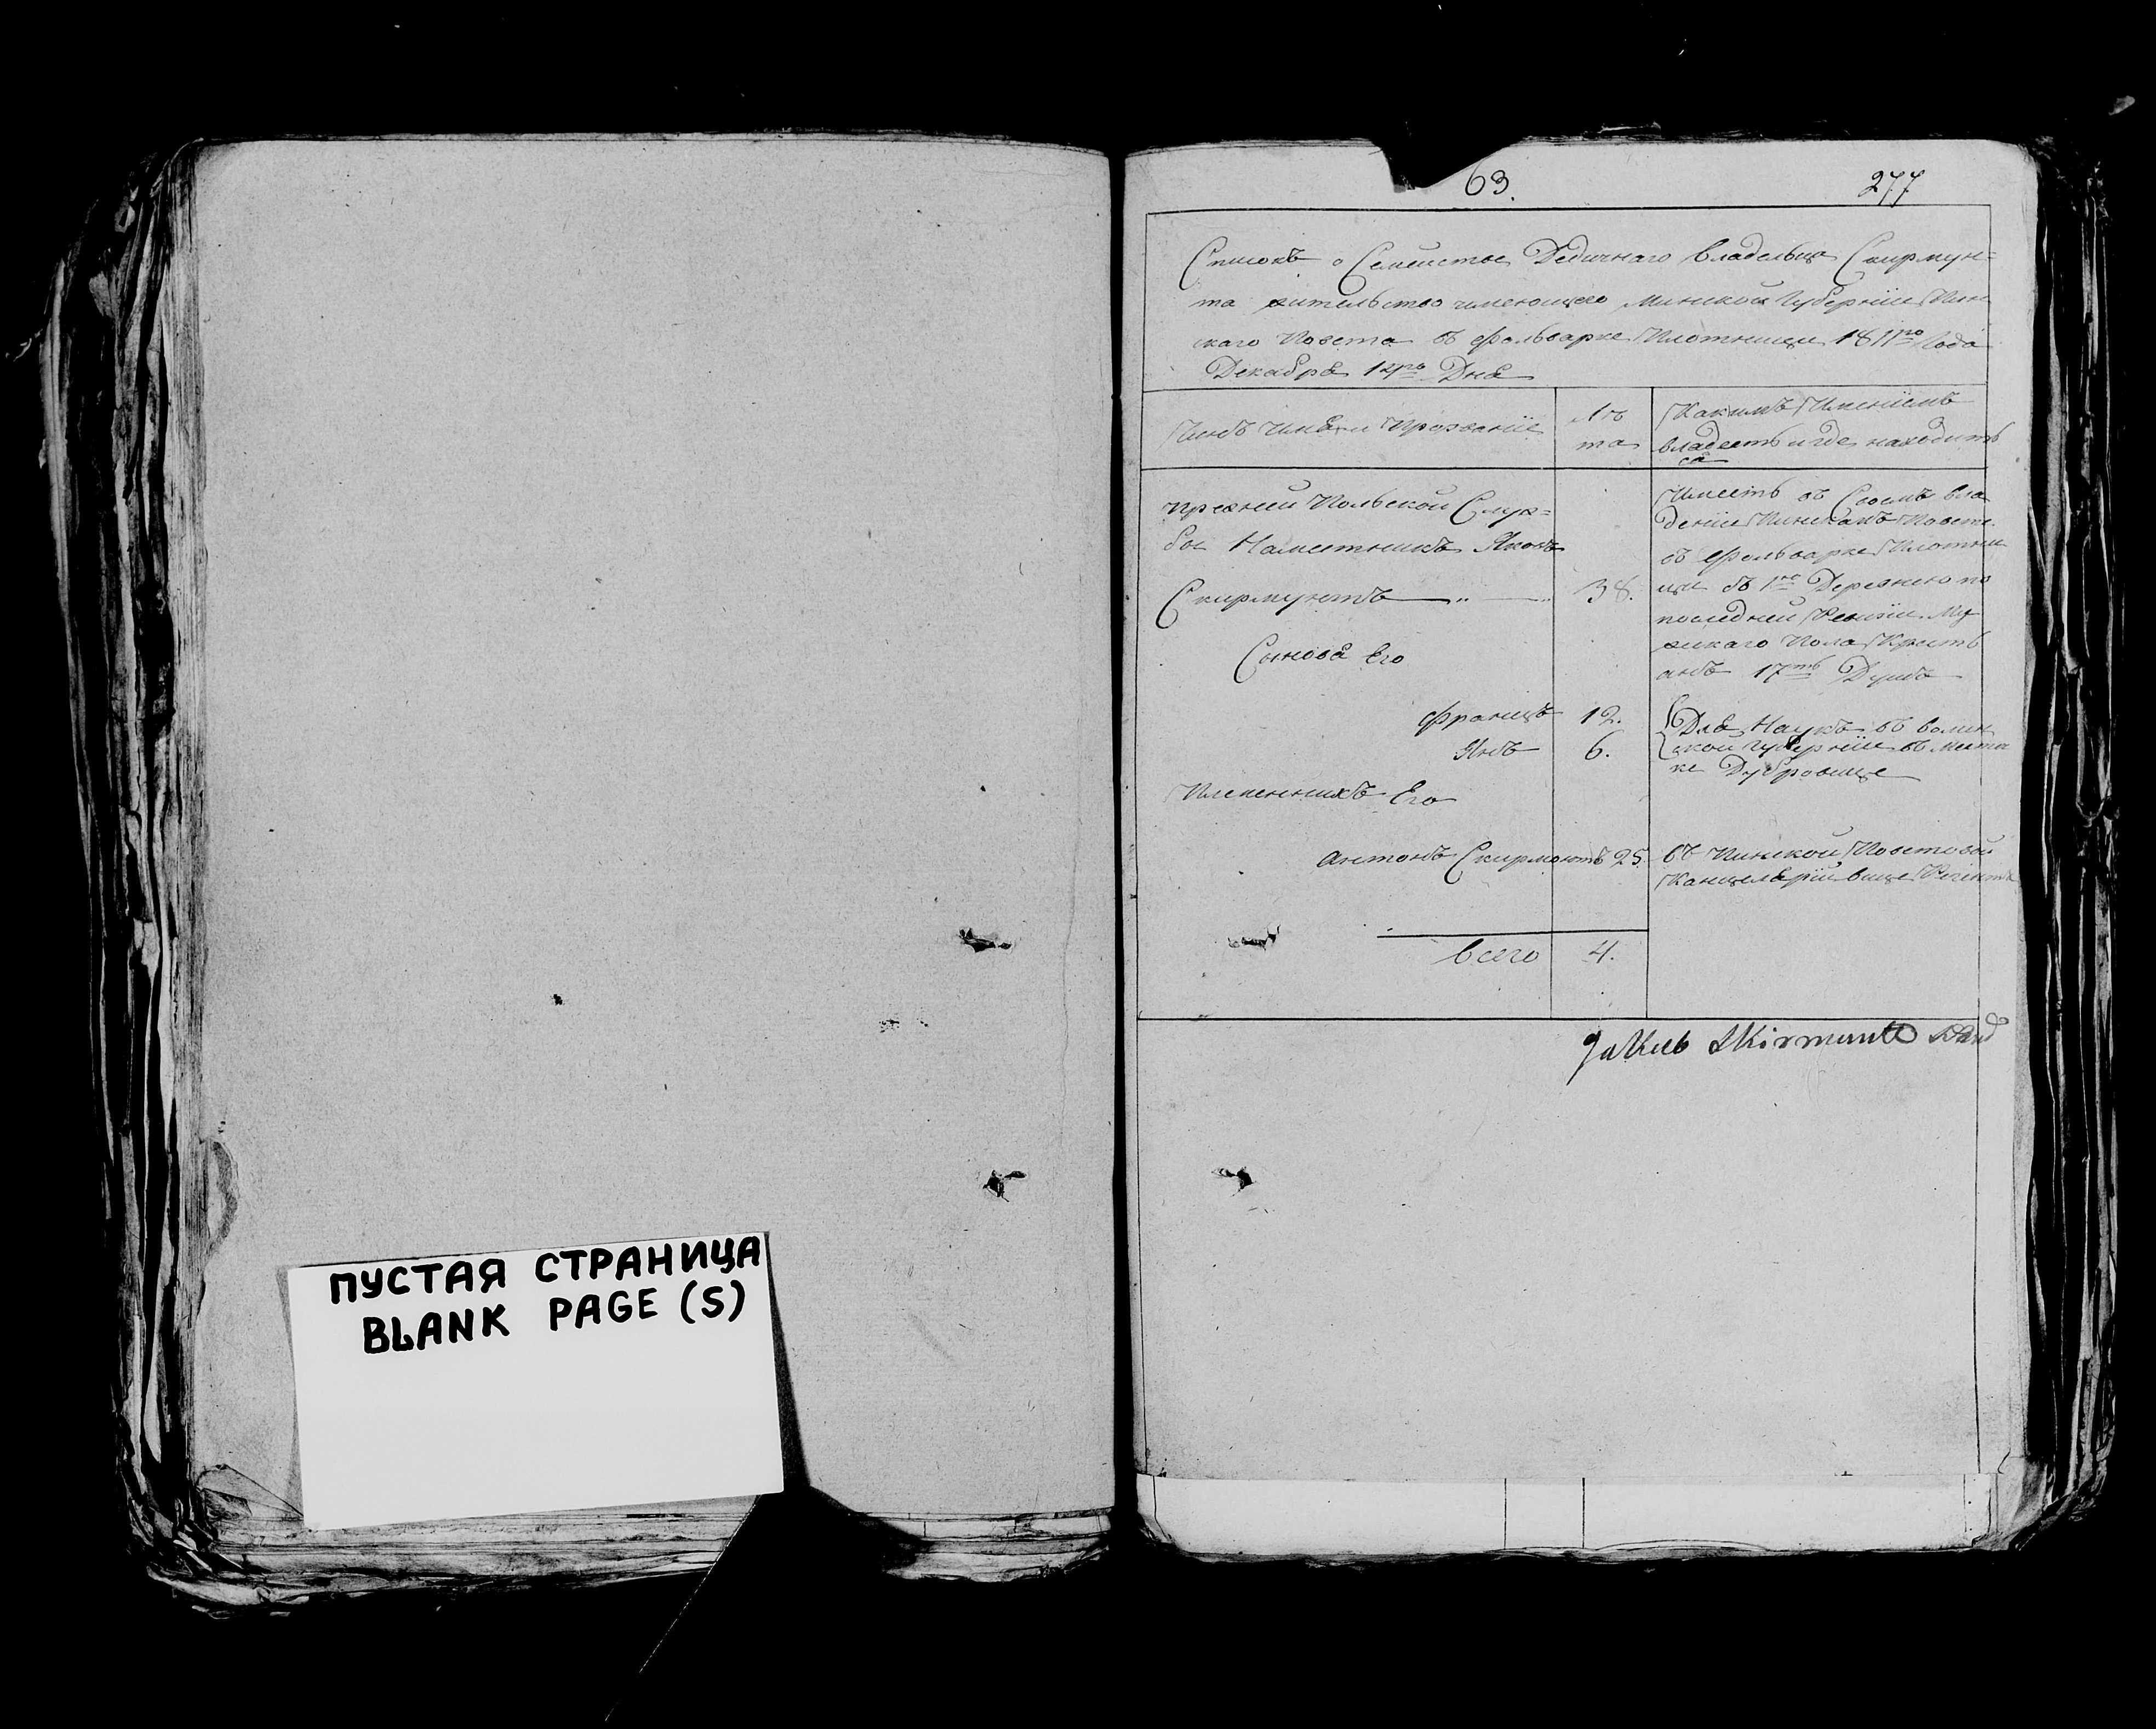 ПУСТАЯ СТРАНИЦА
BLANK PAGE (S)
63.
277
Списокъ о Семействе Дедичнаго владельца Скирмун=
та жительство имеющего Минской Губернии Пин
скаго Повета въ фольварке Плотницы 1811го Года
Декабря 12го Дня
Чинъ Имя и Прозвание
Ле
та
Какимъ Имениемъ
владеетъ и где находитъ
ся
прежней Польской Служ=
бы Наместникъ Яковъ
Скирмунтъ
38.
Имеетъ въ Своемъ вла
дении Пинскомъ Повете
въ фольварке Плотни
цы въ 1ю Деревнею по
последней Ревизии Му
жскаго Пола Кресть
янъ 17ть Душъ
Сыновя Его
францъ 12.
Янъ 6.
Для Наукъ въ волин
ской Губернии въ местеч
ке Дубровице
Племенникъ Его
Антонъ Скирмонтъ 25.
въ Пинской Поветовой
Канцелярии вице Регента
всего 4.
Jakub Skirmuntt